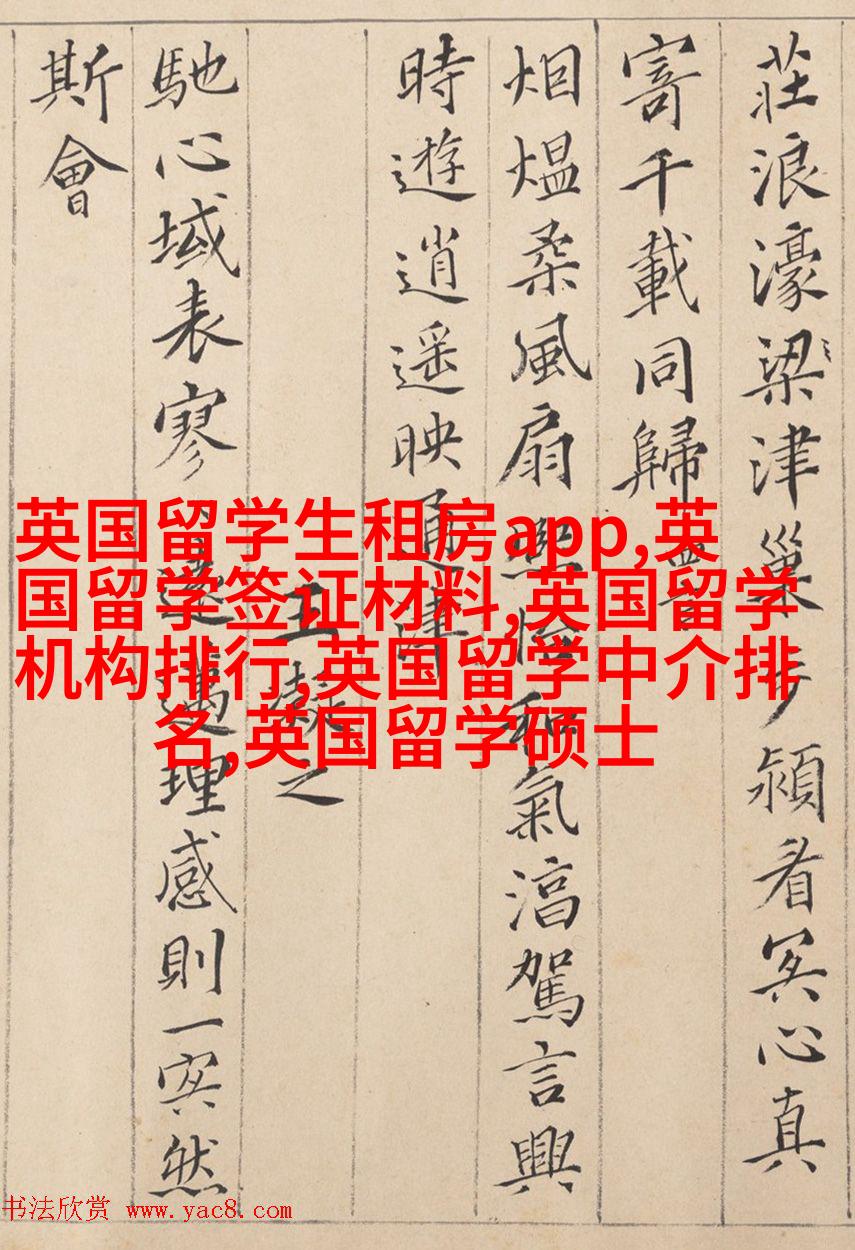 莊浪濠梁津巢步潁看冥心真
寄千載同歸
烟煴柔風扇熙怡和氣淳駕言興
時遊逍遥映通津
王凝之
馳心域表寥遠邁理感則一冥然
斯會
英国留学生租房app,英
国留学签证材料,英国留学
机构排行,英国留学中介排
名,英国留学硕士
书法欣赏 www.yac8.com